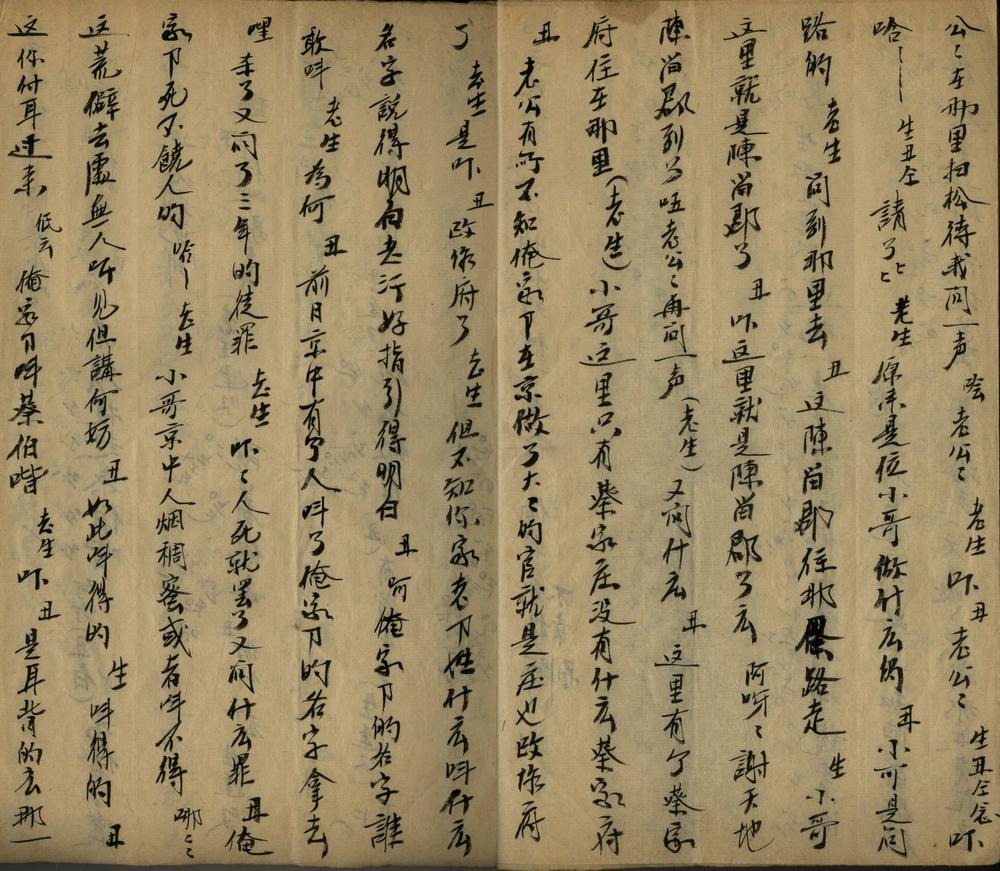 公〻在那里扫松待我问一声 哙 老公〻 老生 吓 丑 老公〻 生丑仝念 吓
哈〻 生丑仝 請了〻 老生 原来是位小哥做什么的 丑 小可是问
路的 老生 问到那里去 丑 这陳畄郡往那里路走 生 小哥
这里就是陳畄郡了 丑 吓这里就是陳畄郡了么 阿呀〻謝天地
陳畄郡到了唔老公〻再问一声(老生)又问什么 丑 这里有个蔡家
府住在那里(老生)小哥这里只有蔡家庄没有什么蔡家府
丑 老公有所不知俺家下在京做了大〻的官就是庄也改作府
了 老生 是吓 丑 改作府了 老生 但不知你家老下姓什么呌什么
名字説得明白老汗好指引得明白 丑 阿俺家下的名字誰
敢呌 老生 為何 丑 前日京中有个人呌了俺家下的名字拿去
哩 杀了又问了三年的徒罪 老生 吓〻人死就罢了又问什么罪 丑 俺
家下死不饒人的 哈〻 老生 小哥京中人烟稠蜜或者呌不得 哪〻
这荒僻去處無人听见但講何妨 丑 如此呌得的 生 呌得的 丑
这你付耳过来 低云 俺家下呌蔡伯喈 老生 吓 丑 是耳背的么那一